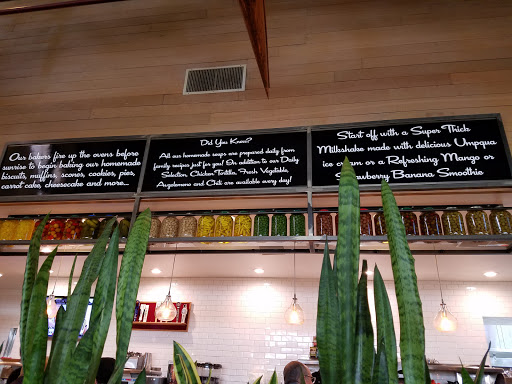 Our bakers fire up the ovens before
sunrise to begin baking our homemade
biscuits, muffins, scones, cookies, pies,
carrot cake, cheesecake and more...
Did You Know?
All our homemade soups are prepared daily from
family recipes just for you! In addition to our Daily
Selection, Chicken Tortilla, Fresh Vegetable,
Avgolemono and Chili are available every day!
Start off with a Super Thick
Milkshake made with delicious Umpqua
ice cream or a Refreshing Mango or
Strawberry Banana Smoothie